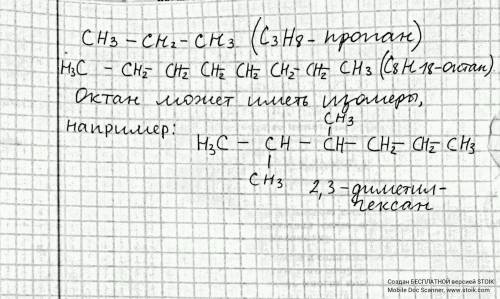 CH3 – CH2 – CH3 (C3H8 – пропан)
H3C – CH2 – CH2 CH2 CH2 – CH2 – CH2 CH3 (C8H18 – октан)
Октан может иметь изомеры,
например:
CH3
H3C – CH – CH – CH2 – CH2 – CH3
CH3
2,3 – диметил-
гексан
Создан БЕСПЛАТНОЙ версией STOIK
Mobile Doc Scanner, www.stoik.com